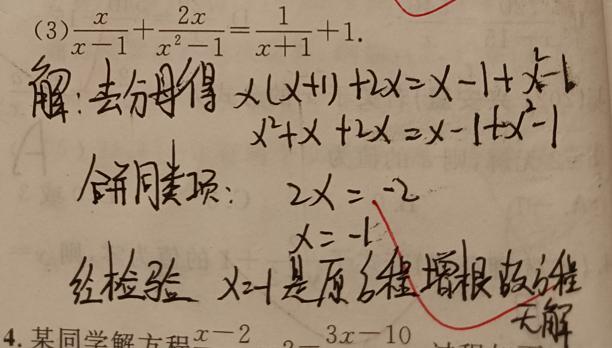 (3) x/(x-1) + 2x/(x²-1) = 1/(x+1) + 1.
解:去分母得 x(x+1)+2x=x-1+x²-1
x²+x+2x=x-1+x²-1
合并同类项: 2x=-2
x=-1
经检验 x=-1是原方程增根故方程
无解
4. 某同学解方程 x-2 3x-10